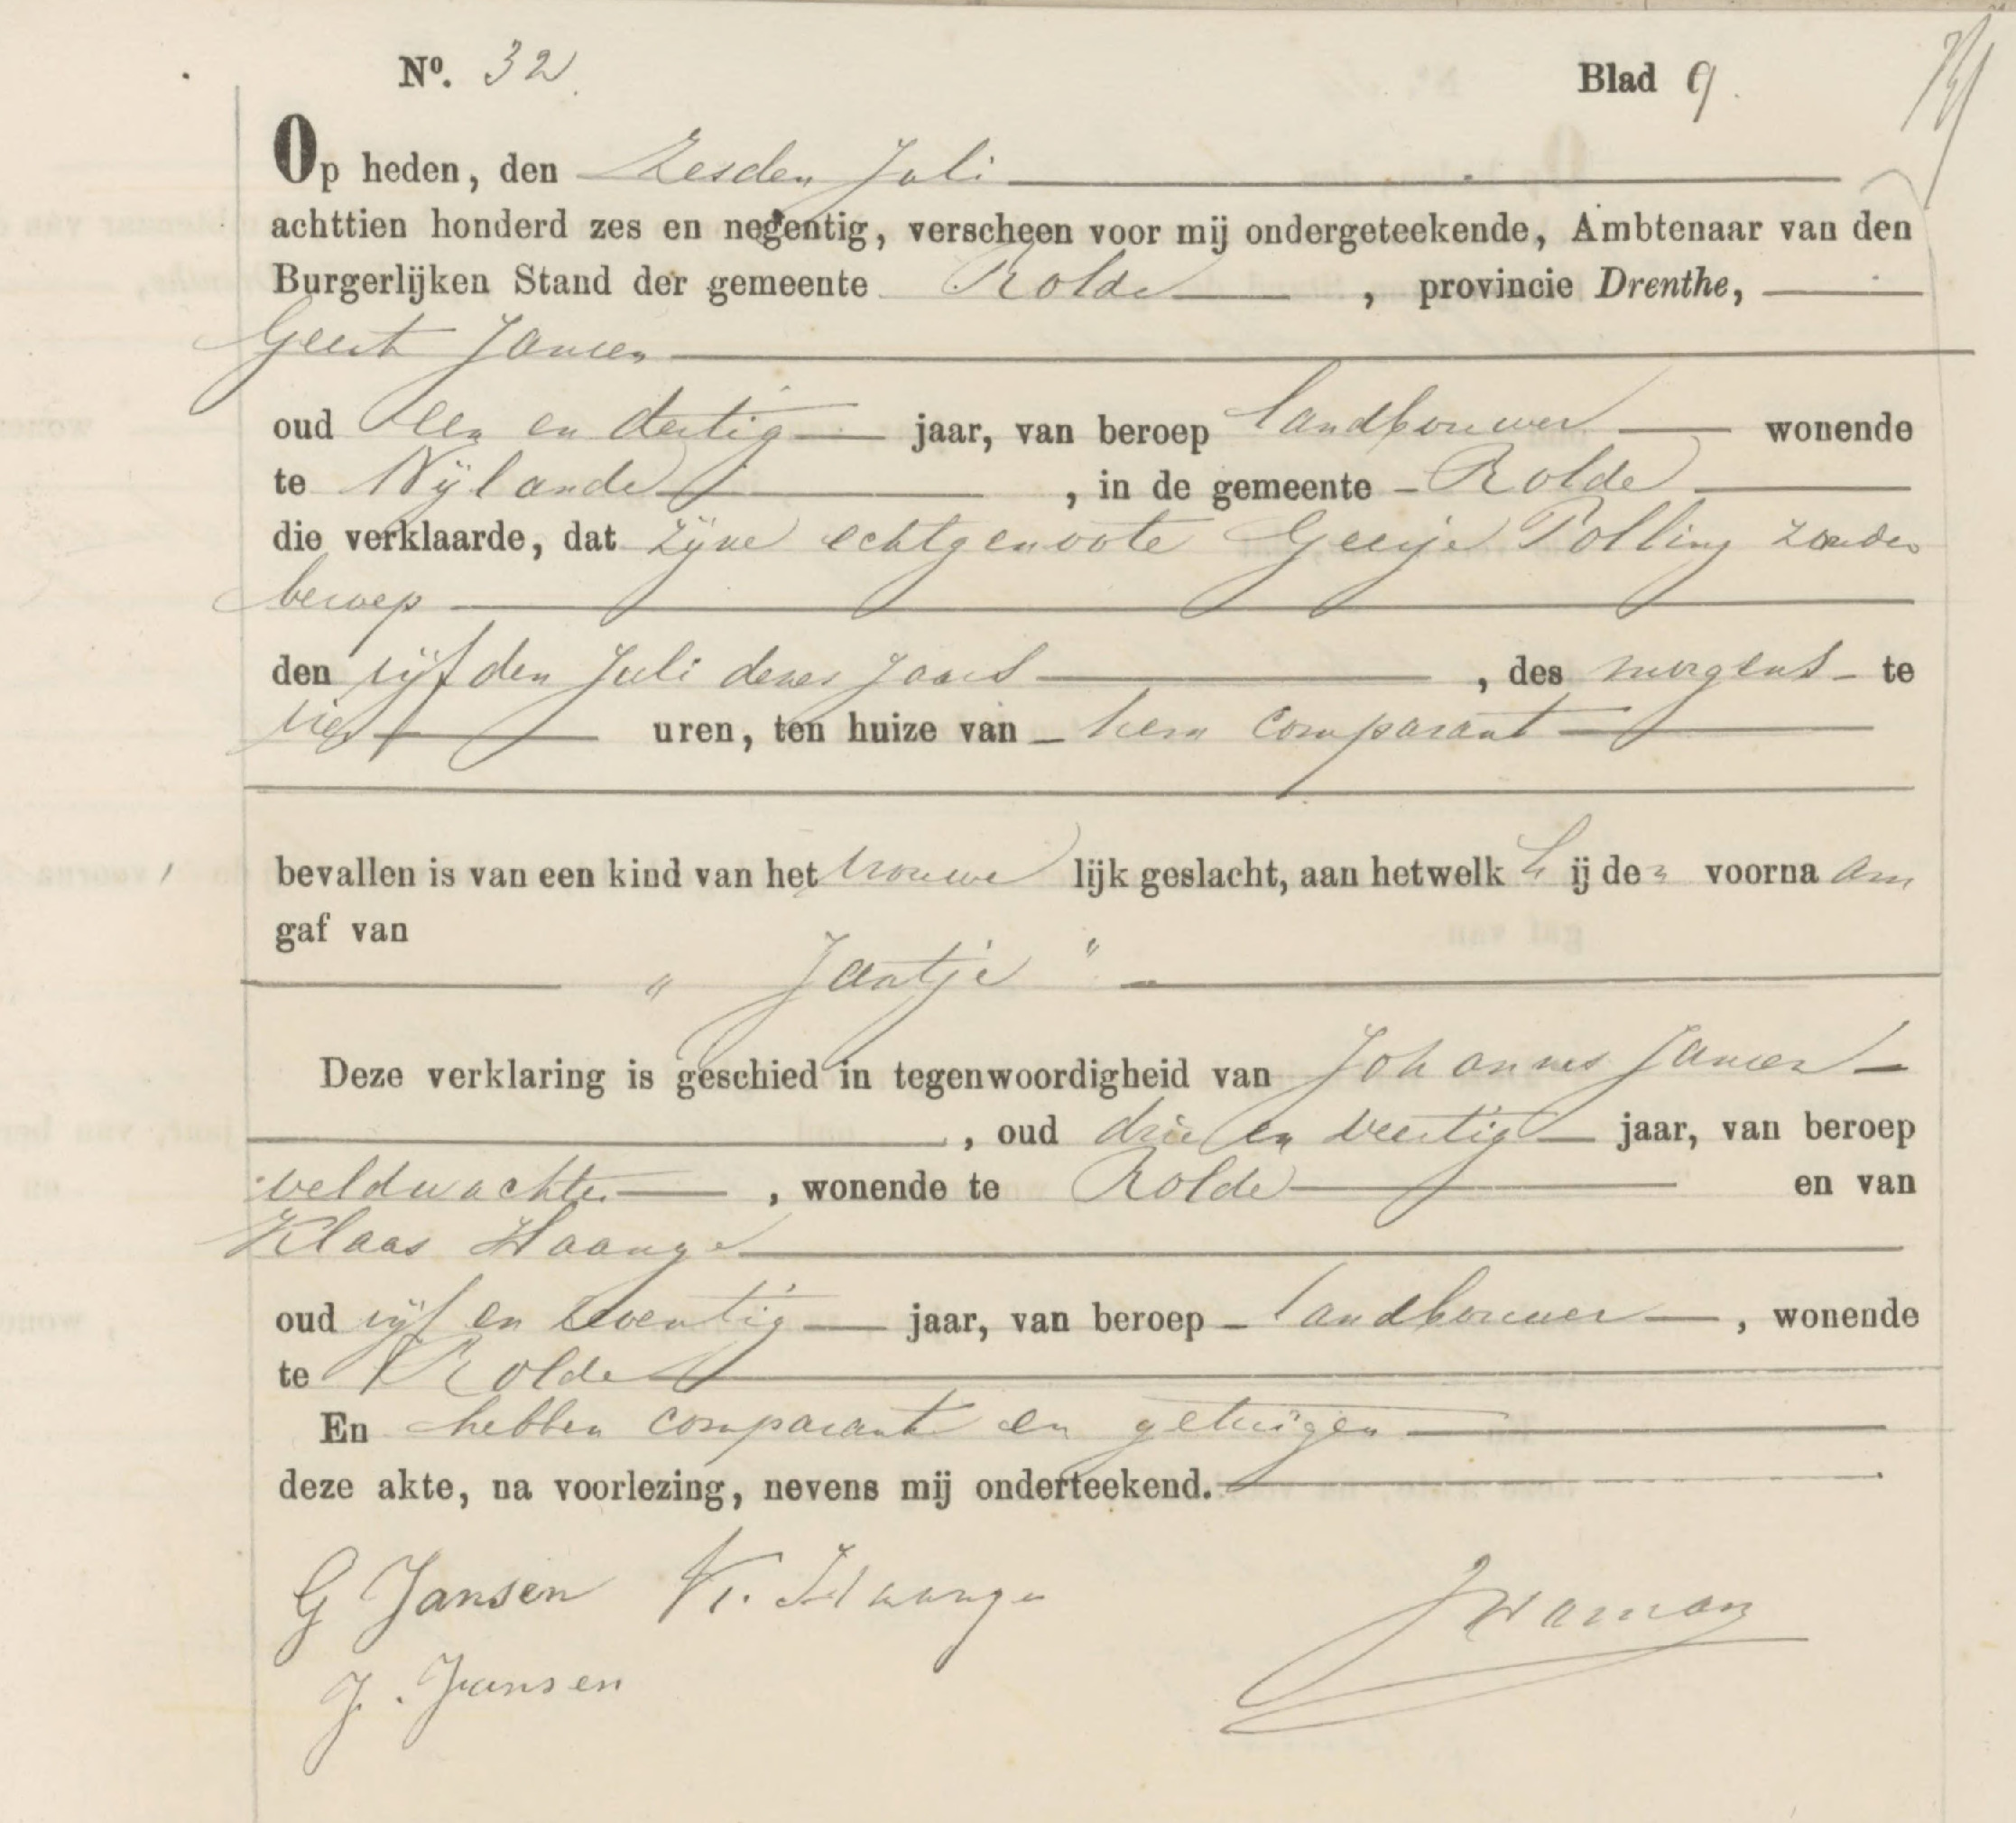 Nº. 32. Blad 9.
Op heden, den Zesden Juli
achttien honderd zes en negentig, verscheen voor mij ondergeteekende, Ambtenaar van den
Burgerlijken Stand der gemeente Rolde, provincie Drenthe,
Geert Jansen
oud een en dertig jaar, van beroep landbouwer wonende
te Nijlande, in de gemeente Rolde
die verklaarde, dat zijne echtgenoote Geesje Polling zonder
beroep
den vijfden Juli dezes jaars, des morgens te
vier uren, ten huize van hem comparant
bevallen is van een kind van het vrouwelijk geslacht, aan hetwelk hij den voornaam
gaf van
„ Jantje "
Deze verklaring is geschied in tegenwoordigheid van Johannes Jansen
, oud drie en veertig jaar, van beroep
veldwachter, wonende te Rolde en van
Klaas Haange
oud vijf en zeventig jaar, van beroep landbouwer, wonende
te Rolde
En hebben comparant en getuigen
deze akte, na voorlezing, nevens mij onderteekend.
G Jansen K. Haange
J. Jansen